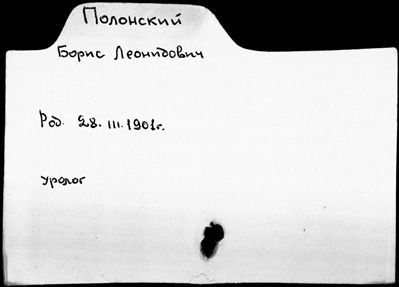 Полонский
Борис Леонидович
Род. 28.III.1901г.
уролог